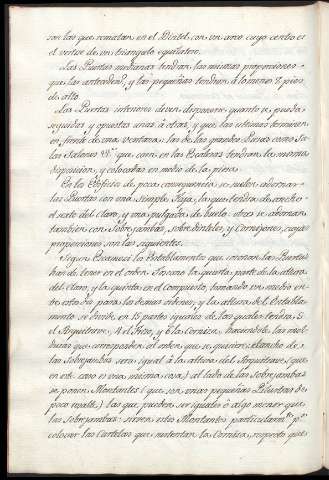 son las que rematan en el Dintel con un arco cuyo centro es
el vertice de un triangulo equilatero.
Las Puertas medianas tendran las mismas proporciones
que las anteced.s, y las pequeñas tendran à lo menos 7 pies
de alto.
Las Puertas interiores deven disponerse quanto se pueda
seguidas y opuestas unas à otras, y que las ultimas terminen
en frente de una ventana, las de las grandes Piezas como Sa-
las Salones &.a que caen en las tendran la misma
disposicion, y colocadas en medio de la pieza.
En los Edificios de poca consequencia se suelen adornar
las Puertas con una simple Faja, la que tendra de ancho
el sexto del claro, y una pulgada de buelo: otras se adornan
tambien con Sobrejambas, sobredinteles, y Cornisones, cuyas
proporciones son las siguientes.
Segun Escamozi los Entablamentos que coronan las Puertas
han de tener en el orden Toscano la quarta parte de la altura
del Claro, y la quinta en el Compuesto, tomando un medio en-
tre estos dos para los demas ordenes; y la altura del Entabla-
mento se divide en 15 partes iguales de las quales tendra 5
el Arquitrave, 4 el Friso, y 6 la Cornisa, haciendole las mol-
duras que corresponden al orden que se quisiere; el ancho de
las Sobrejambas sera igual à la altura del Arquitrave (que
en este caso es una misma cosa,) al lado de las Sobrejambas
se ponen Montantes (que son unas pequeñas Pilastras de
poco resalte,) las que pueden ser iguales ò algo menor que
las sobrejambas: sirven estos Montantes particularm.te p.a
colocar las Cartelas que sustentan la Cornisa, respecto que